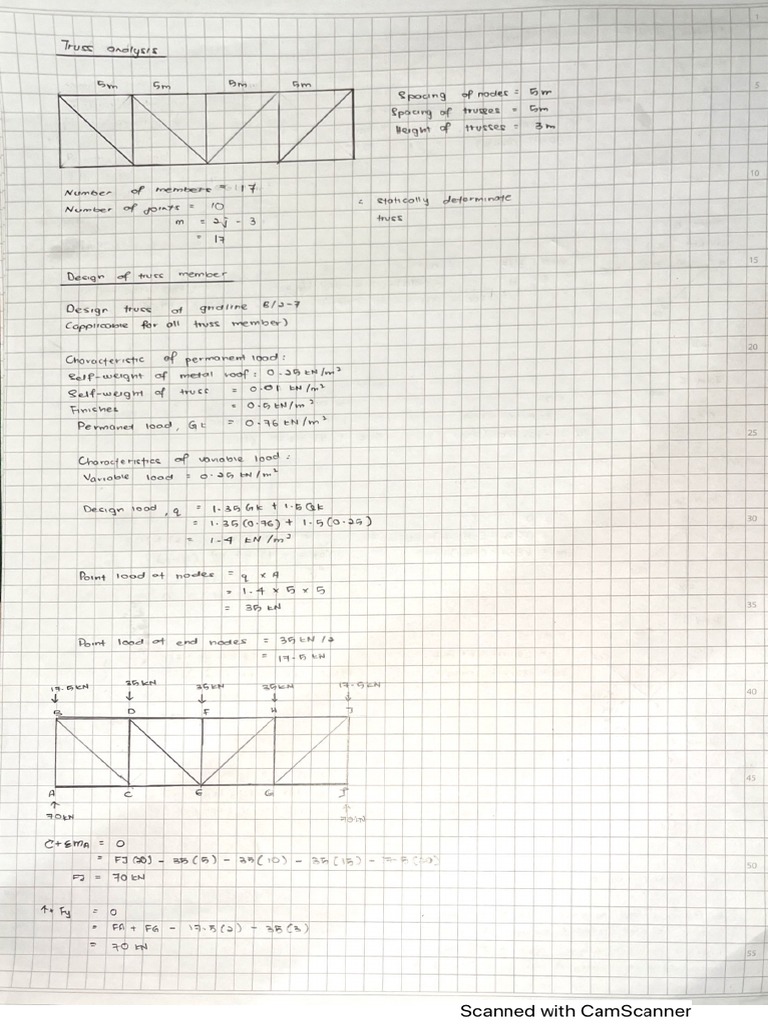 Truss analysis
5m 5m 5m 5m
Spacing of nodes = 5m
Spacing of trusses = 5m
Height of trusses = 3m
Number of members = 17
Number of joints = 10
m = 2j - 3
= 17
∴ statically determinate
truss
Design of truss member
Design truss at gridline B/2-7
(applicable for all truss member)
Characteristic of permanent load:
Self-weight of metal roof: 0.25 kN/m²
Self-weight of truss = 0.01 kN/m²
Finishes = 0.5 kN/m²
Permanet load, Gk = 0.76 kN/m²
Characteristics of variable load:
Variable load = 0.25 kN/m²
Design load, q = 1.35 Gk + 1.5 Qk
= 1.35(0.76) + 1.5(0.25)
= 1.4 kN/m²
Point load at nodes = q x A
= 1.4 x 5 x 5
= 35 kN
Point load at end nodes = 35 kN/2
= 17.5 kN
17.5kN 35kN 35kN 35kN 17.5kN
↓ ↓ ↓ ↓ ↓
B D F H
A C E G J
↑ ↑
70kN 70kN
ΣMA = 0
= FJ(20) - 35(5) - 35(10) - 35(15) -
FJ = 70 kN
↑+ Fy = 0
= FA + - 17.5(2) - 35(3)
= 70 kN
1
5
10
15
20
25
30
35
40
45
50
55
Scanned with CamScanner